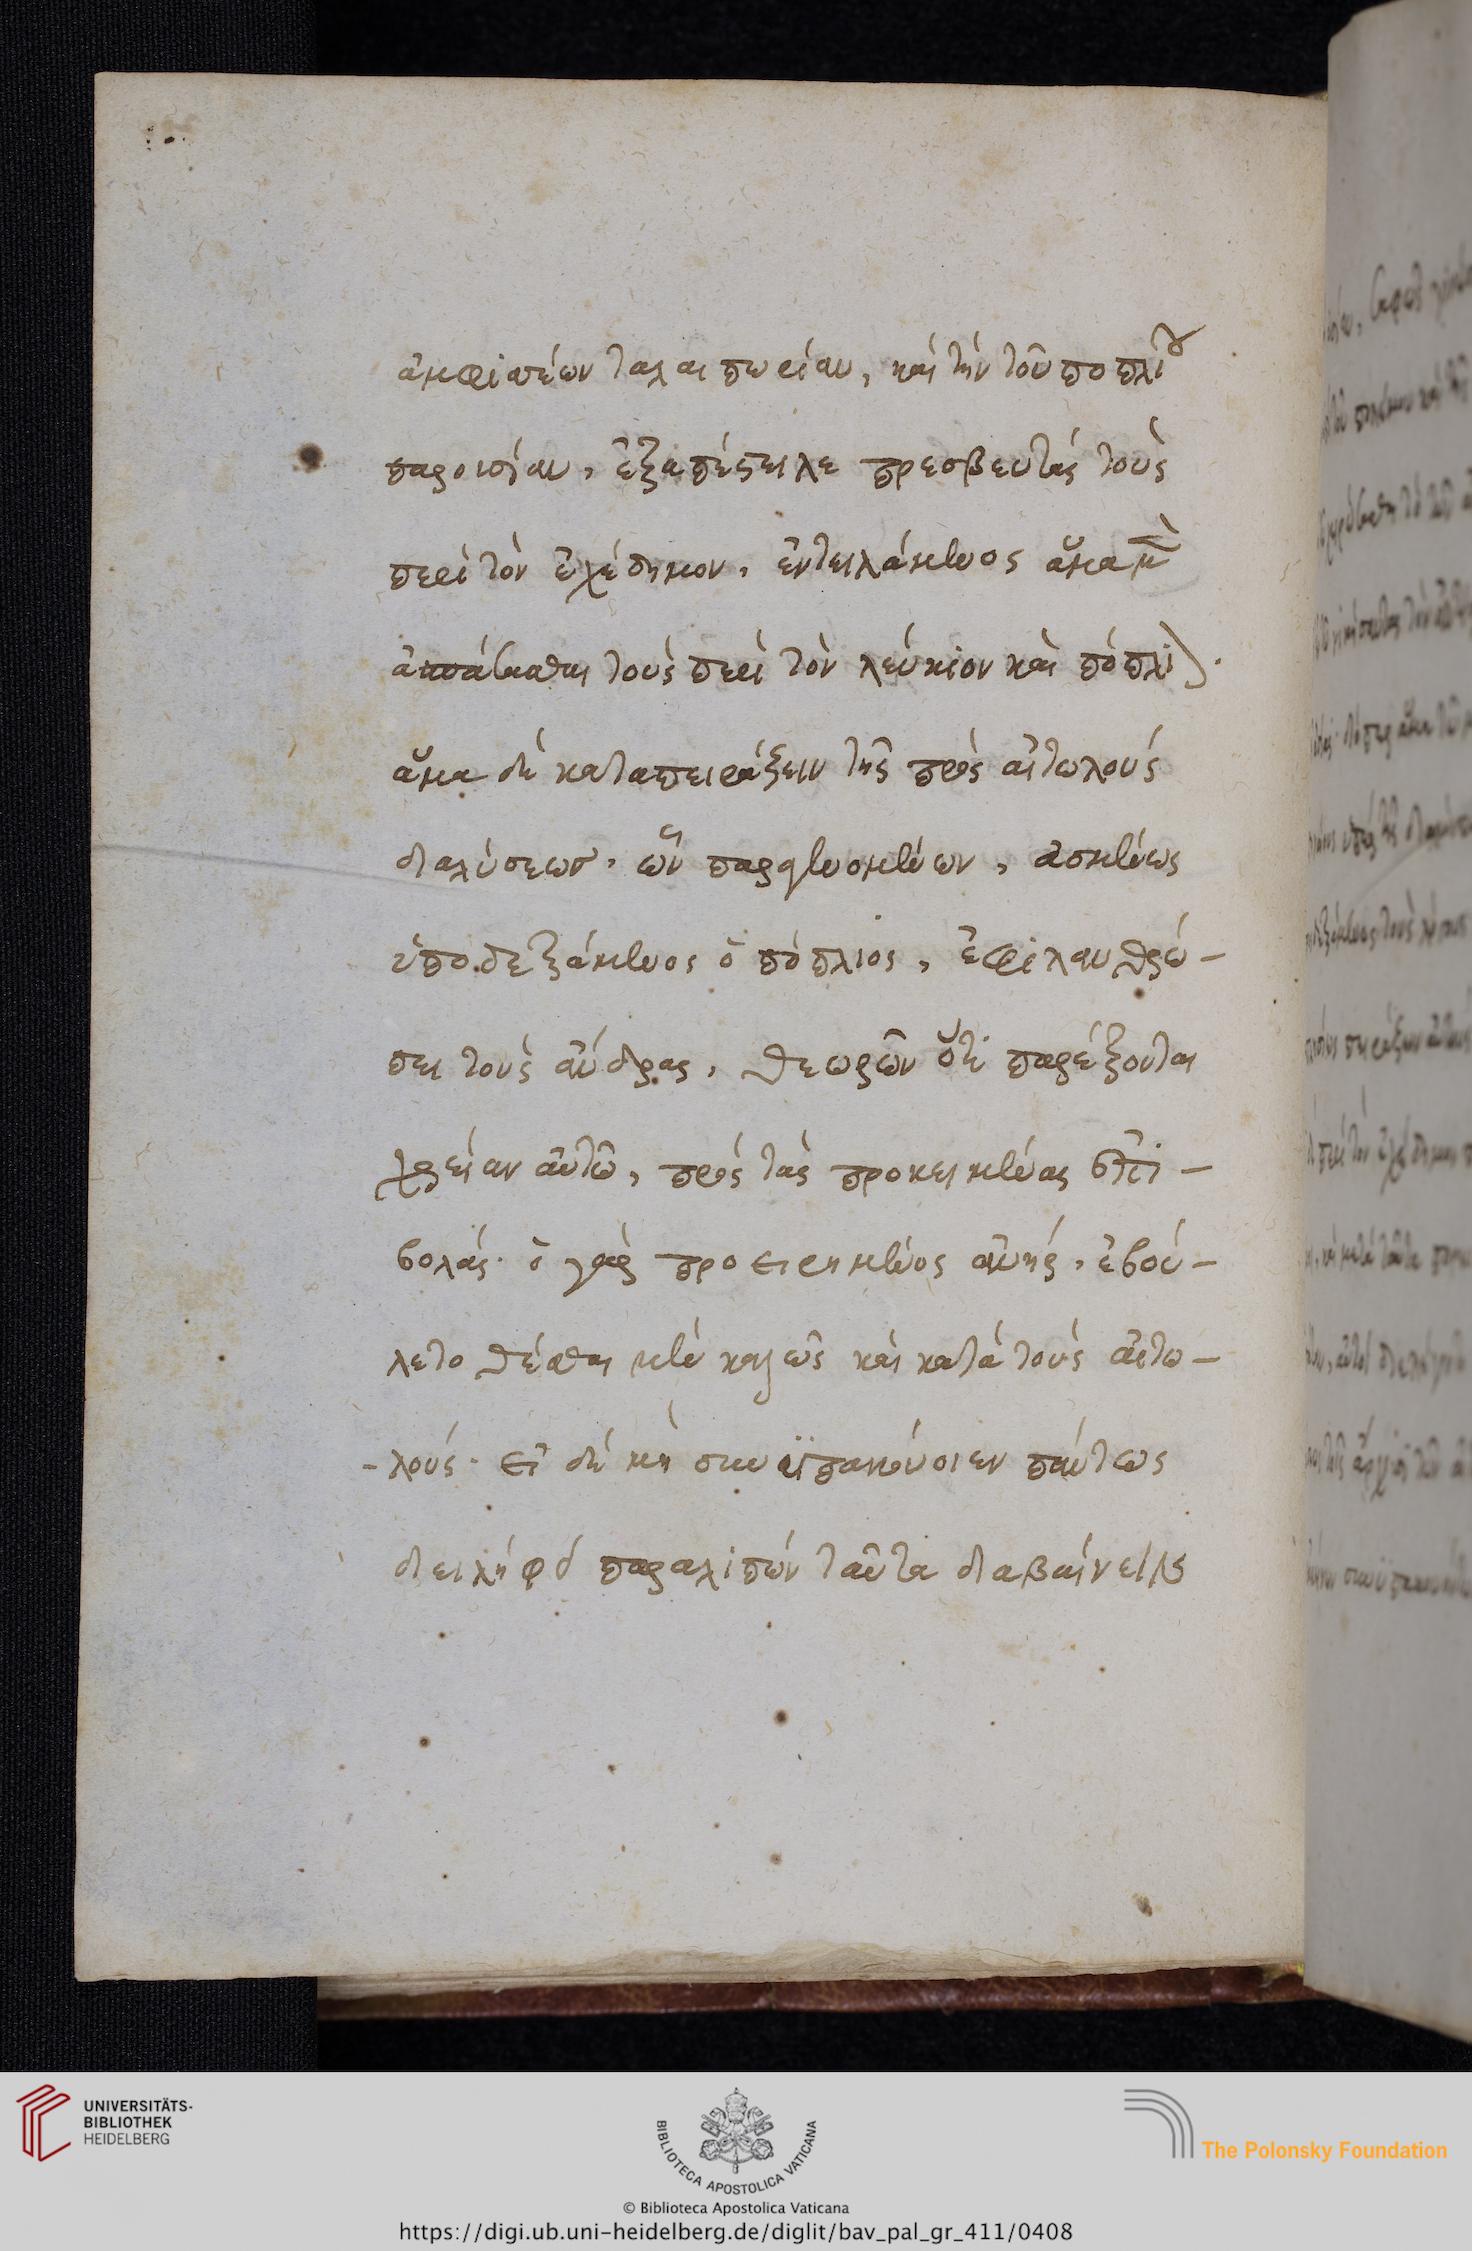 ἀμφισέων ταλαιπωρίαν, καὶ τὴν τοῦ ποπλίου
παρουσίαν, ἐξαπέστειλε πρεσβευτὰς τοὺς
περὶ τὸν ἐχέδημον, ἐντειλάμενος ἅμα μὲν
ἀσπάσασθαι τοὺς περὶ τὸν λεύκιον καὶ πόπλιον.
ἅμα δὲ καταπειράζειν τῆς πρὸς αἰτωλοὺς
διαλύσεως. ὧν παραγενομένων, ἀσμένως
ὑποδεξάμενος ὁ πόπλιος, ἐφιλανθρώ-
πει τοὺς ἄνδρας, θεωρῶν ὅτι παρέξονται
χρείαν αὐτῶ, πρὸς τὰς προκειμένας ἐπι-
βολάς. ὁ γὰρ προειρημένος ἀνὴρ, ἐβού-
λετο θέσθαι μὲν καλῶς καὶ κατὰ τοὺς αἰτω-
-λούς. εἰ δὲ μὴ συνϋπακούοιεν πάντως
διειλήφει παραλιπὼν ταῦτα διαβαίνειν
UNIVERSITÄTS-
BIBLIOTHEK
HEIDELBERG
BIBLIOTECA APOSTOLICA VATICANA
The Polonsky Foundation
© Biblioteca Apostolica Vaticana
https://digi.ub.uni-heidelberg.de/diglit/bav_pal_gr_411/0408